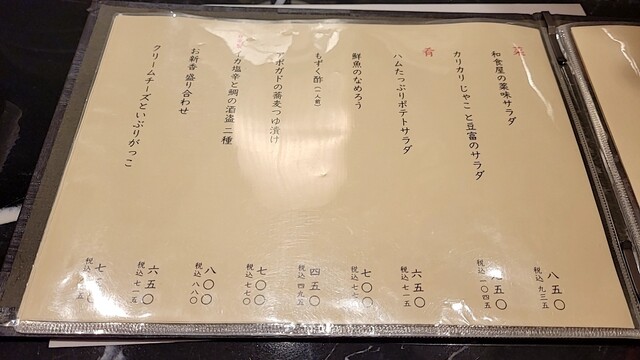 菜
和食屋の薬味サラダ
八五〇
税込 九三五
カリカリじゃこと豆富のサラダ
九五〇
税込 一〇四五
肴
ハムたっぷりポテトサラダ
六五〇
税込 七一五
鮮魚のなめろう
七〇〇
税込 七七〇
もずく酢(一人前)
四五〇
税込 四九五
アボガドの蕎麦つゆ漬け
七〇〇
税込 七七〇
イカ塩辛と鯛の酒盗 二種
八〇〇
税込 八八〇
お新香 盛り合わせ
六五〇
税込 七一五
クリームチーズといぶりがっこ
税込